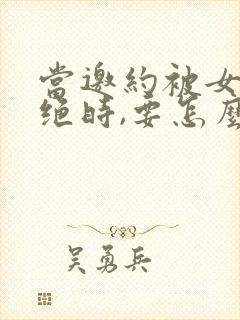 當邀約被女
絕時,要怎麼
吳勇兵